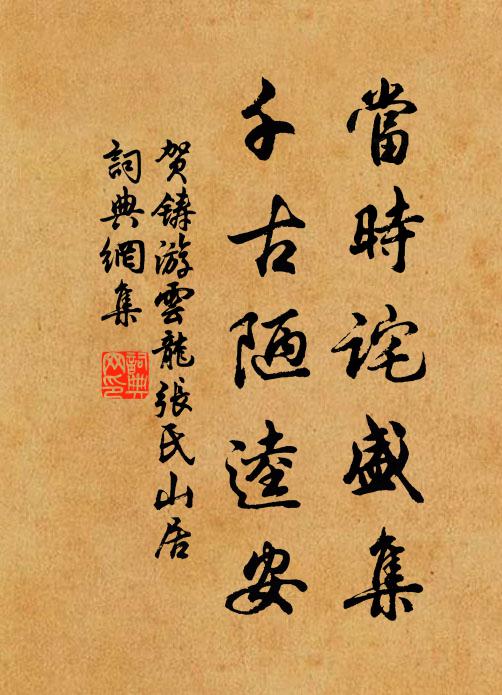 當時詫盛集
千古陋逵安
贺鑄游雲龍張氏山居
詞典網集
詞典網印